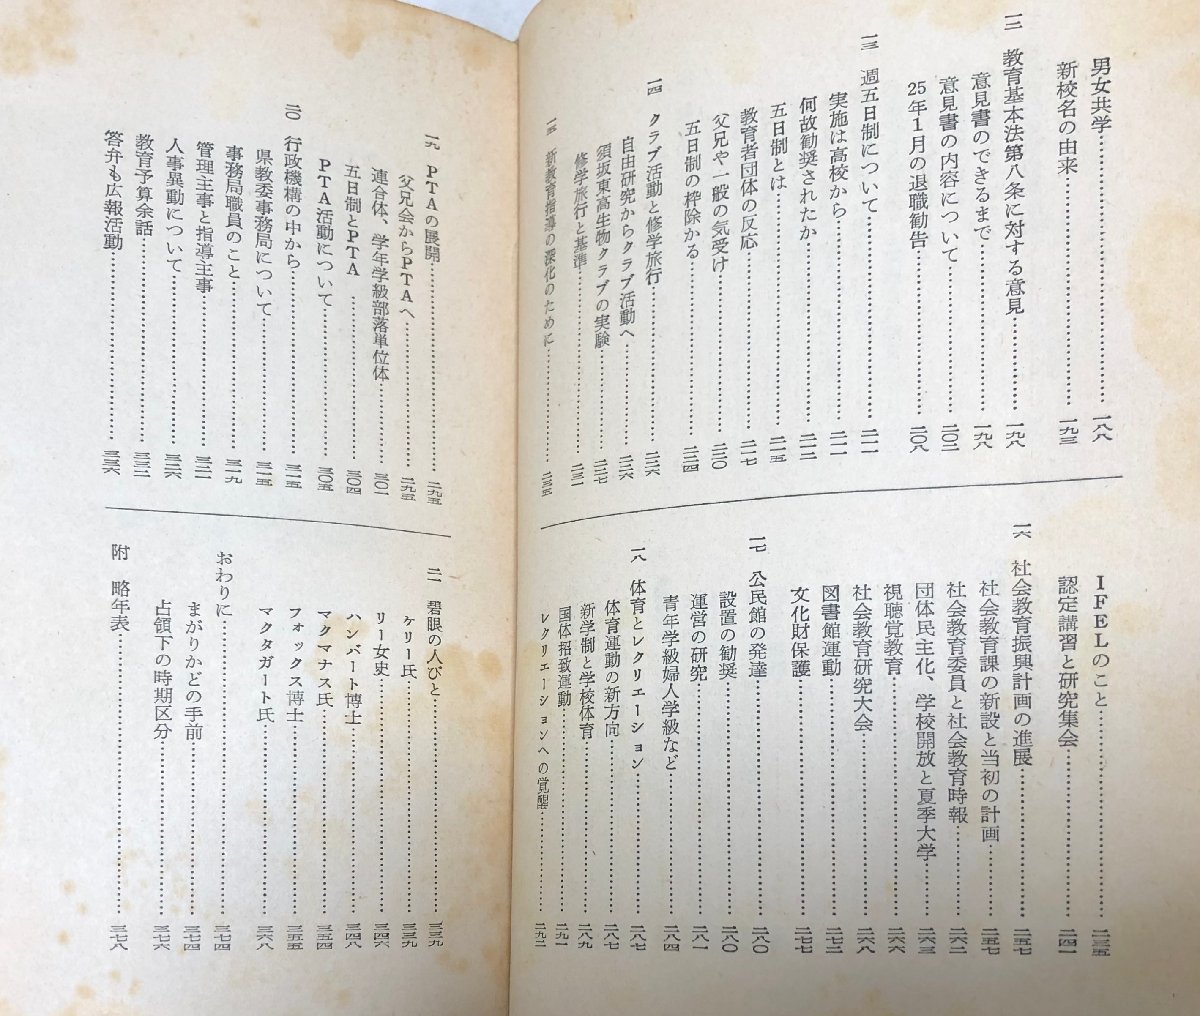 男女共学……一八八
新校名の由来……一九三
一二 教育基本法第八条に対する意見……一九八
意見書のできるまで……一九八
意見書の内容について……二〇二
25年1月の退職勧告……二〇八
一三 週五日制について……二一一
実施は高校から……二一一
何故勧奨されたか……二一二
五日制とは……二一五
教育者団体の反応……二一七
父兄や一般の気受け……二二〇
五日制の枠除かる……二二四
一四 クラブ活動と修学旅行……二二六
自由研究からクラブ活動へ……二二六
須坂東高生物クラブの実験……二二七
修学旅行と基準……二三一
一五 新教育指導の深化のために……二三五
IFELのこと……二三五
認定講習と研究集会……二四一
一六 社会教育振興計画の進展……二五七
社会教育課の新設と当初の計画……二五七
社会教育委員と社会教育時報……二六二
団体民主化、学校開放と夏季大学……二六三
視聴覚教育……二六六
社会教育研究大会……二六八
図書館運動……二七二
文化財保護……二七七
一七 公民館の発達……二八〇
設置の勧奨……二八〇
運営の研究……二八一
青年学級婦人学級など……二八四
一八 体育とレクリエーション……二八七
体育運動の新方向……二八七
新学制と学校体育……二八九
国体招致運動……二九一
レクリエーションへの覚醒……二九二
一九 PTAの展開……二九五
父兄会からPTAへ……二九五
連合体、学年学級部落単位体……三〇一
五日制とPTA……三〇四
PTA活動について……三〇五
二〇 行政機構の中から……三一五
県教委事務局について……三一五
事務局職員のこと……三一九
管理主事と指導主事……三二一
人事異動について……三二六
教育予算余話……三三二
答弁も広報活動……三三六
二一 碧眼の人びと……三三九
ケリー氏……三三九
リー女史……三四六
ハンバート博士……三四八
マクマナス氏……三五四
フォックス博士……三五五
マクタガート氏……三六八
おわりに……三七四
まがりかどの手前……三七四
占領下の時期区分……三七六
附 略年表……三七八